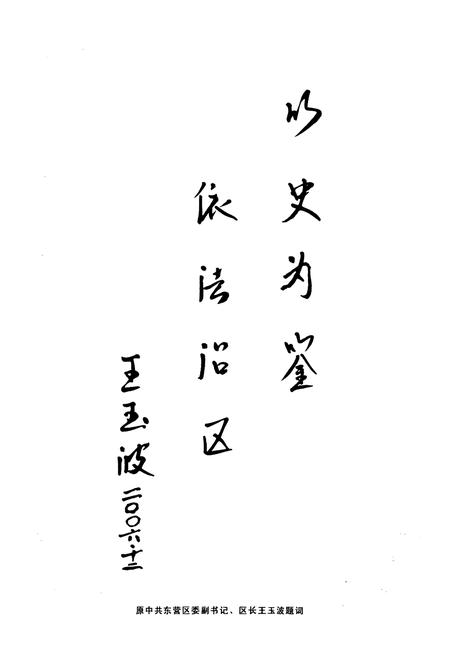 以史为鉴
依法治区
王玉波
二〇〇六·十二
原中共东营区委副书记、区长王玉波题词